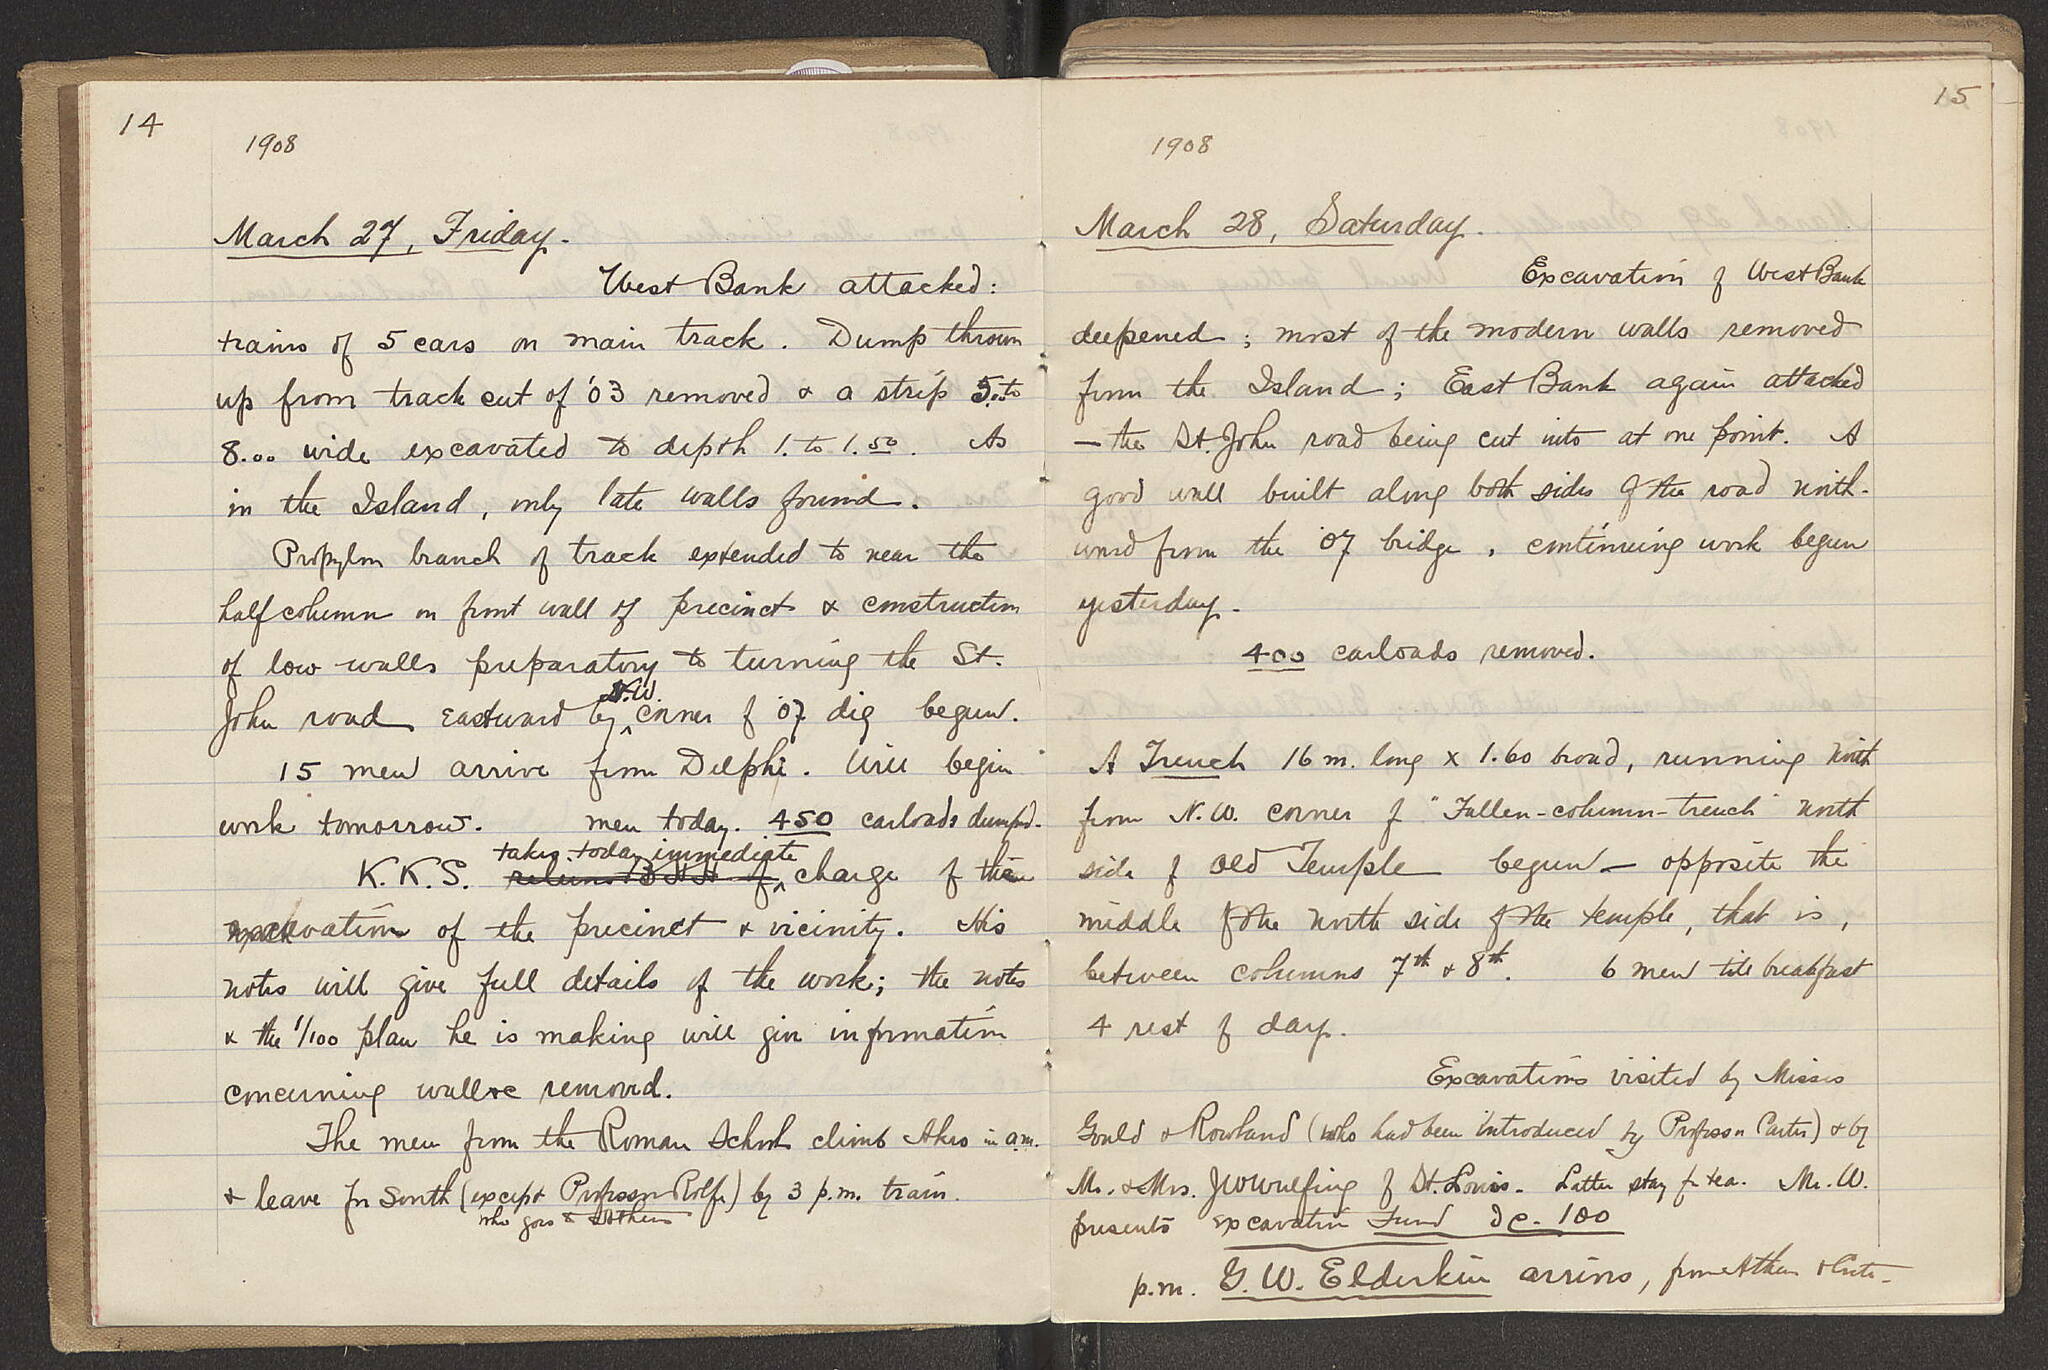 14
1908
March 27, Friday.
West Bank attacked:
trains of 5 cars on main track. Dump thrown
up from track cut of '03 removed & a strip 5.. to
8.00 wide excavated to depth 1. to 1.50. As
in the Island, only late walls found.
Propylon branch of track extended to near the
half column on front wall of precinct & construction
of low walls preparatory to turning the St.
John road eastward by N.W. corner of '07 dig begun.
15 men arrive from Delphi. Will begin
work tomorrow. men today. 450 carloads dumped.
K.K.S. takes today immediate charge of the
excavation of the precinct & vicinity. His
notes will give full details of the work; the notes
& the 1/100 plan he is making will give information
concerning walls &c removed.
The men from the Roman School climb Akro in a.m.
& leave for South (except Professor Rolfe) by 3 p.m. train.
who goes to Athens
15
1908
March 28, Saturday.
Excavation of West Bank
deepened; most of the modern walls removed
from the Island; East Bank again attacked
— the St. John road being cut into at one point. A
good wall built along both sides of the road north-
ward from the '07 bridge, continuing work begun
yesterday.
400 carloads removed.
A Trench 16 m. long x 1.60 broad, running north
from N.W. corner of "Fallen-column-trench" north
side of Old Temple begun — opposite the
middle of the north side of the temple, that is,
between columns 7th & 8th. 6 men till breakfast
4 rest of day.
Excavations visited by Misses
Gould & Rowland (who had been introduced by Professor Carter) & by
Mr. & Mrs. J W Wulfing of St. Louis. Latter stay for tea. Mr. W.
presents excavation Fund dr. 100
p.m. G. W. Elderkin arrives, from Athens & Crete.